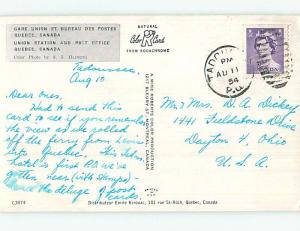 GARE UNION ET BUREAU DES POSTES
QUEBEC, CANADA
UNION STATION AND POST OFFICE
QUEBEC, CANADA
NATURAL
Color Card
FROM KODACHROME
Tadoussac
Aug 10
Dear ones,
Had to send this
card to see if you remember
the view as we rolled
off the ferry from Levis
into Quebec. This
hotel is first P.O. we've
gotten near (with stamps) -
hence the deluge of post
cards.
PM
AU 11
54
P.Q.
Mr & Mrs D. A. Dickey
1441 Fieldstone Drive
Dayton 9, Ohio
U. S. A.
C3674
Distributeur Emile Kirouac, 101 rue St-Roch, Quebec, Canada